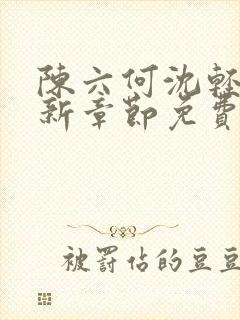 陳六何沈輕
新章節免費
被罰佔的豆豆